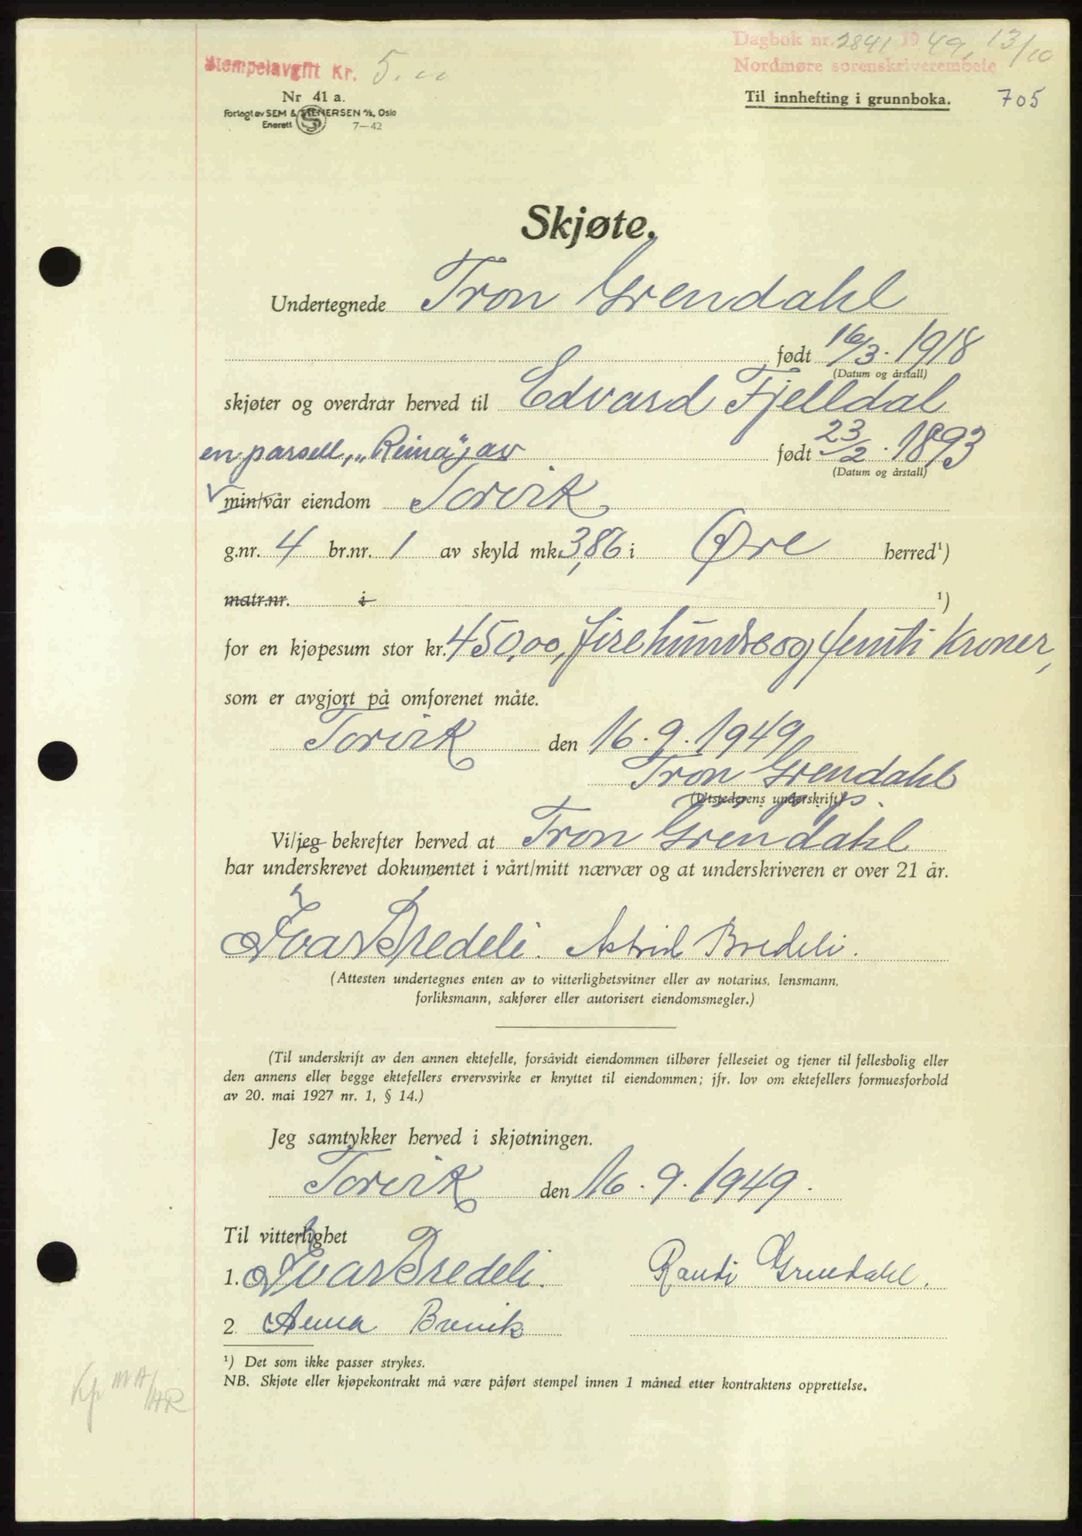 Dagbok nr. 2841 1949, 13/10
Stempelavgift Kr. 5.00
Nordmøre sorenskriverembete
Nr 41 a.
Til innhefting i grunnboka. 705
Forlagt av SEM & STENERSEN A/S, Oslo
Enerett 7-42
Skjøte.
Undertegnede Tron Grendahl
født 16/3. 1918
(Datum og årstall)
skjøter og overdrar herved til Edvard Fjelldal
en parsell, „Reina", av født 23/2. 1893
(Datum og årstall)
min/vår eiendom Torvik
g.nr. 4 br.nr. 1 av skyld mk. 3,86 i Øre herred¹)
matr.nr. i ¹)
for en kjøpesum stor kr. 450,00, firehundre og femti kroner,
som er avgjort på omforenet måte.
Torvik den 16.9.1949
Tron Grendahl
(Utstederens underskrift)
Vi/jeg bekrefter herved at Tron Grendahl
har underskrevet dokumentet i vårt/mitt nærvær og at underskriveren er over 21 år.
Ivar Bredeli. Astrid Bredeli.
(Attesten undertegnes enten av to vitterlighetsvitner eller av notarius, lensmann,
forliksmann, sakfører eller autorisert eiendomsmegler.)
(Til underskrift av den annen ektefelle, forsåvidt eiendommen tilhører felleseiet og tjener til fellesbolig eller
den annens eller begge ektefellers ervervsvirke er knyttet til eiendommen; jfr. lov om ektefellers formuesforhold
av 20. mai 1927 nr. 1, § 14.)
Jeg samtykker herved i skjøtningen.
Torvik den 16.9.1949.
Til vitterlighet
1. Ivar Bredeli. Randi Grendahl.
2 Anna Brevik
¹) Det som ikke passer strykes.
NB. Skjøte eller kjøpekontrakt må være påført stempel innen 1 måned etter kontraktens opprettelse.